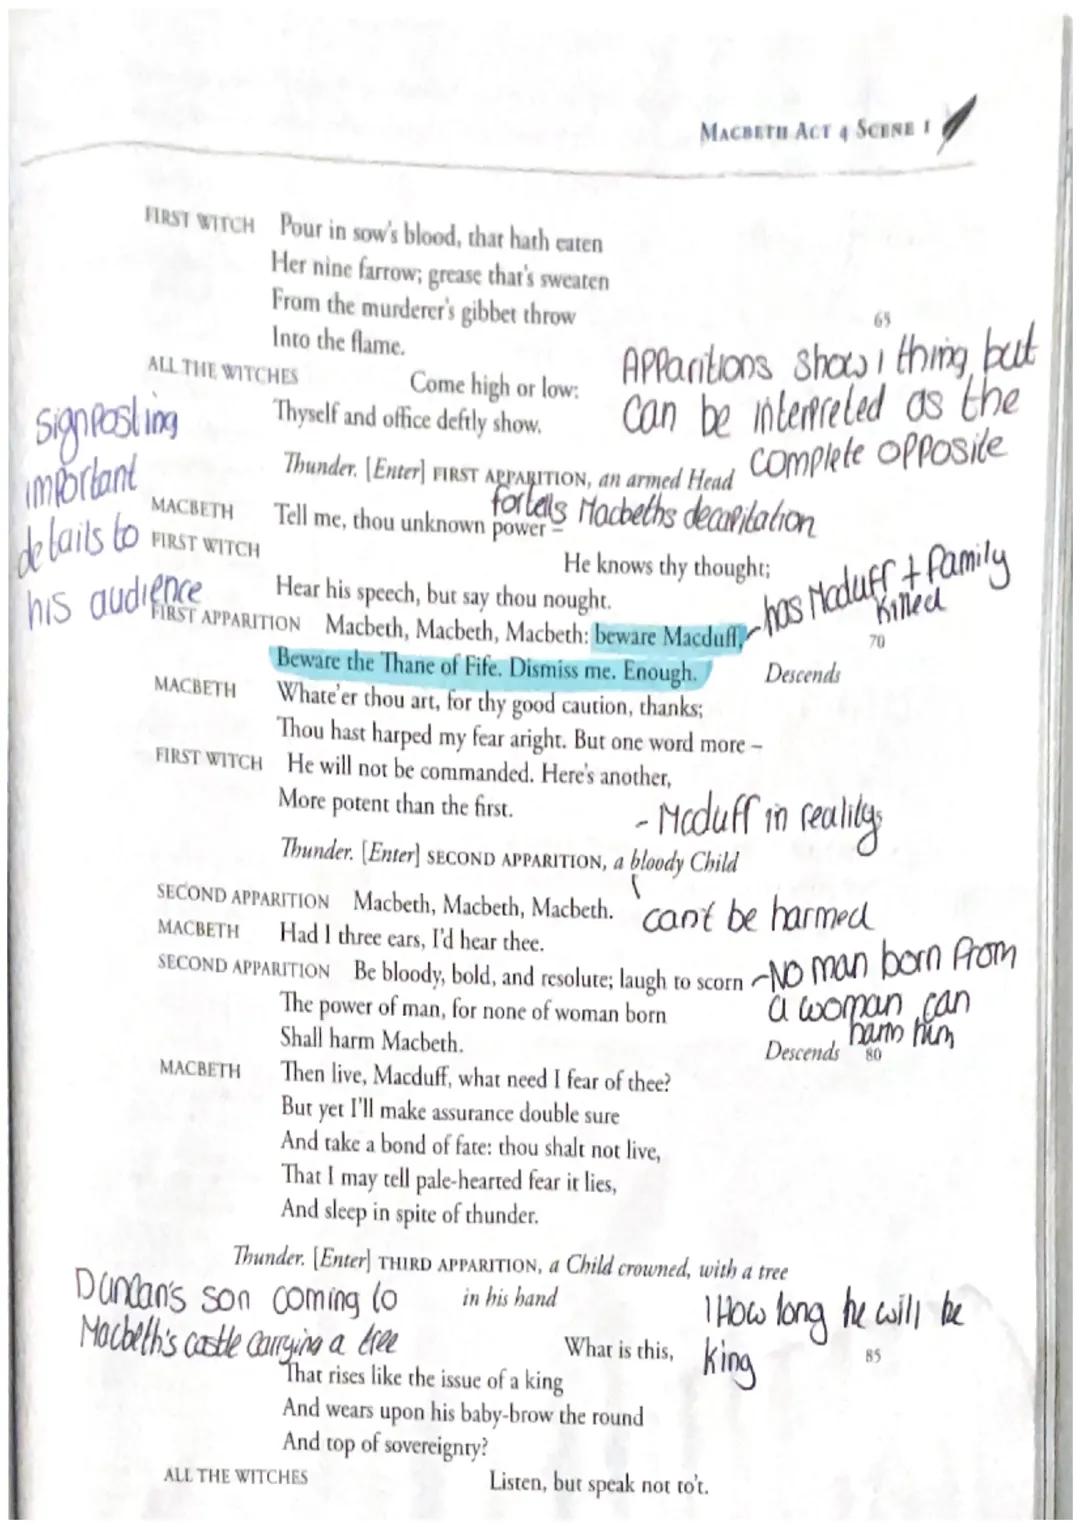 MACBETH ACT 4 SCENE 1
FIRST WITCH Pour in sow's blood, that hath eaten
Her nine farrow; grease that's sweaten
From the murderer's gibbet throw
65
Into the flame.
ALL THE WITCHES Come high or low:
Thyself and office deftly show.
Apparitions show 1 thing, but
can be interpreted as the
complete opposite
signposting
important
details to
his audience
Thunder. [Enter] FIRST APPARITION, an armed Head
fortells Macbeths decapitation
MACBETH Tell me, thou unknown power –
FIRST WITCH He knows thy thought;
Hear his speech, but say thou nought.
FIRST APPARITION Macbeth, Macbeth, Macbeth: beware Macduff,
has Mcduff + family
killed
70
Beware the Thane of Fife. Dismiss me. Enough. Descends
MACBETH Whate'er thou art, for thy good caution, thanks;
Thou hast harped my fear aright. But one word more –
FIRST WITCH He will not be commanded. Here's another,
More potent than the first.
- Mcduff in reality
Thunder. [Enter] SECOND APPARITION, a bloody Child
SECOND APPARITION Macbeth, Macbeth, Macbeth.
can't be harmed
MACBETH Had I three ears, I'd hear thee.
SECOND APPARITION Be bloody, bold, and resolute; laugh to scorn
-No man born from
a woman can
harm him
The power of man, for none of woman born
Shall harm Macbeth. Descends 80
MACBETH Then live, Macduff, what need I fear of thee?
But yet I'll make assurance double sure
And take a bond of fate: thou shalt not live,
That I may tell pale-hearted fear it lies,
And sleep in spite of thunder.
Thunder. [Enter] THIRD APPARITION, a Child crowned, with a tree
in his hand
Duncan's son coming to
Macbeth's castle carrying a tree
How long he will be
king
What is this, 85
That rises like the issue of a king
And wears upon his baby-brow the round
And top of sovereignty?
ALL THE WITCHES Listen, but speak not to't.